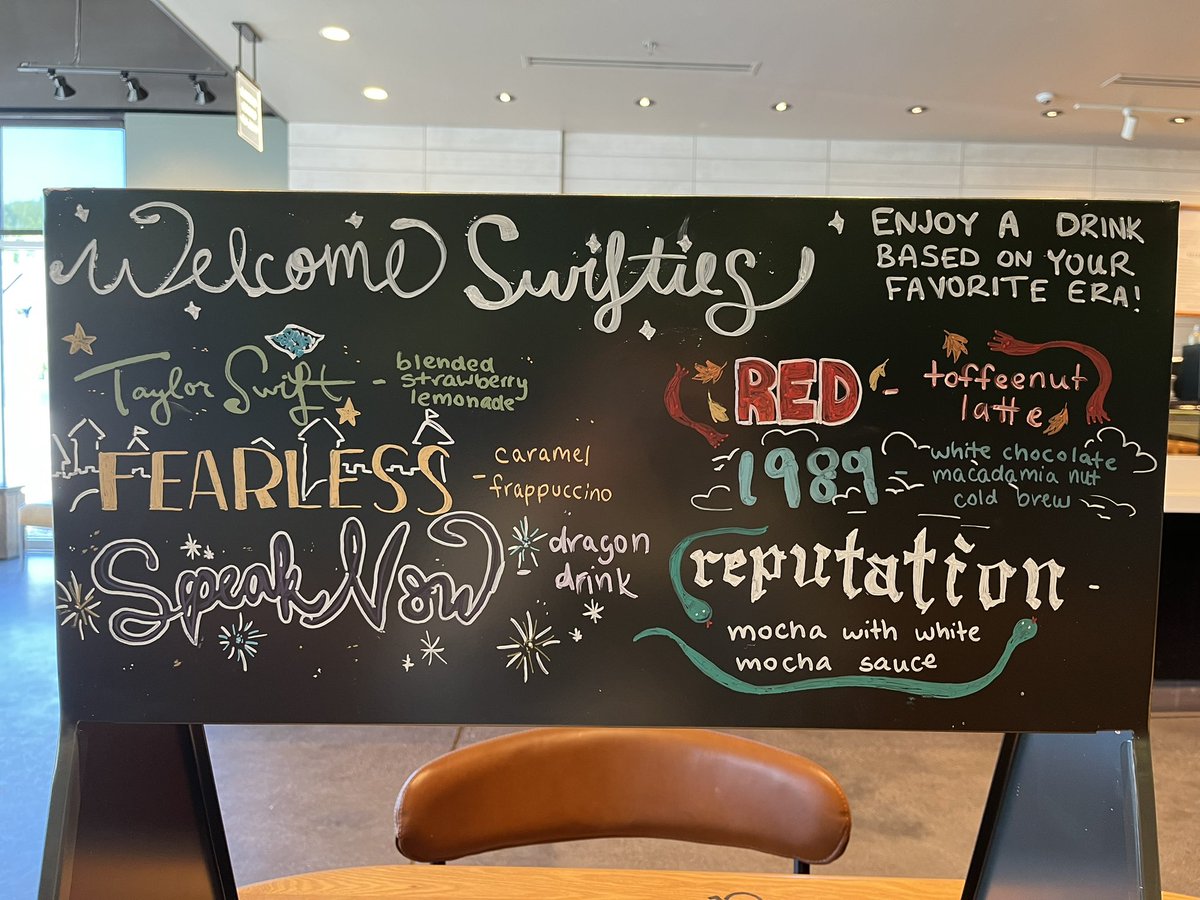 Welcome Swifties
ENJOY A DRINK
BASED ON YOUR
FAVORITE ERA!
Taylor Swift - blended
strawberry
lemonade
FEARLESS - caramel
frappuccino
Speak Now dragon
drink
RED - toffeenut
latte
1989 - white chocolate
macadamia nut
cold brew
reputation -
mocha with white
mocha sauce